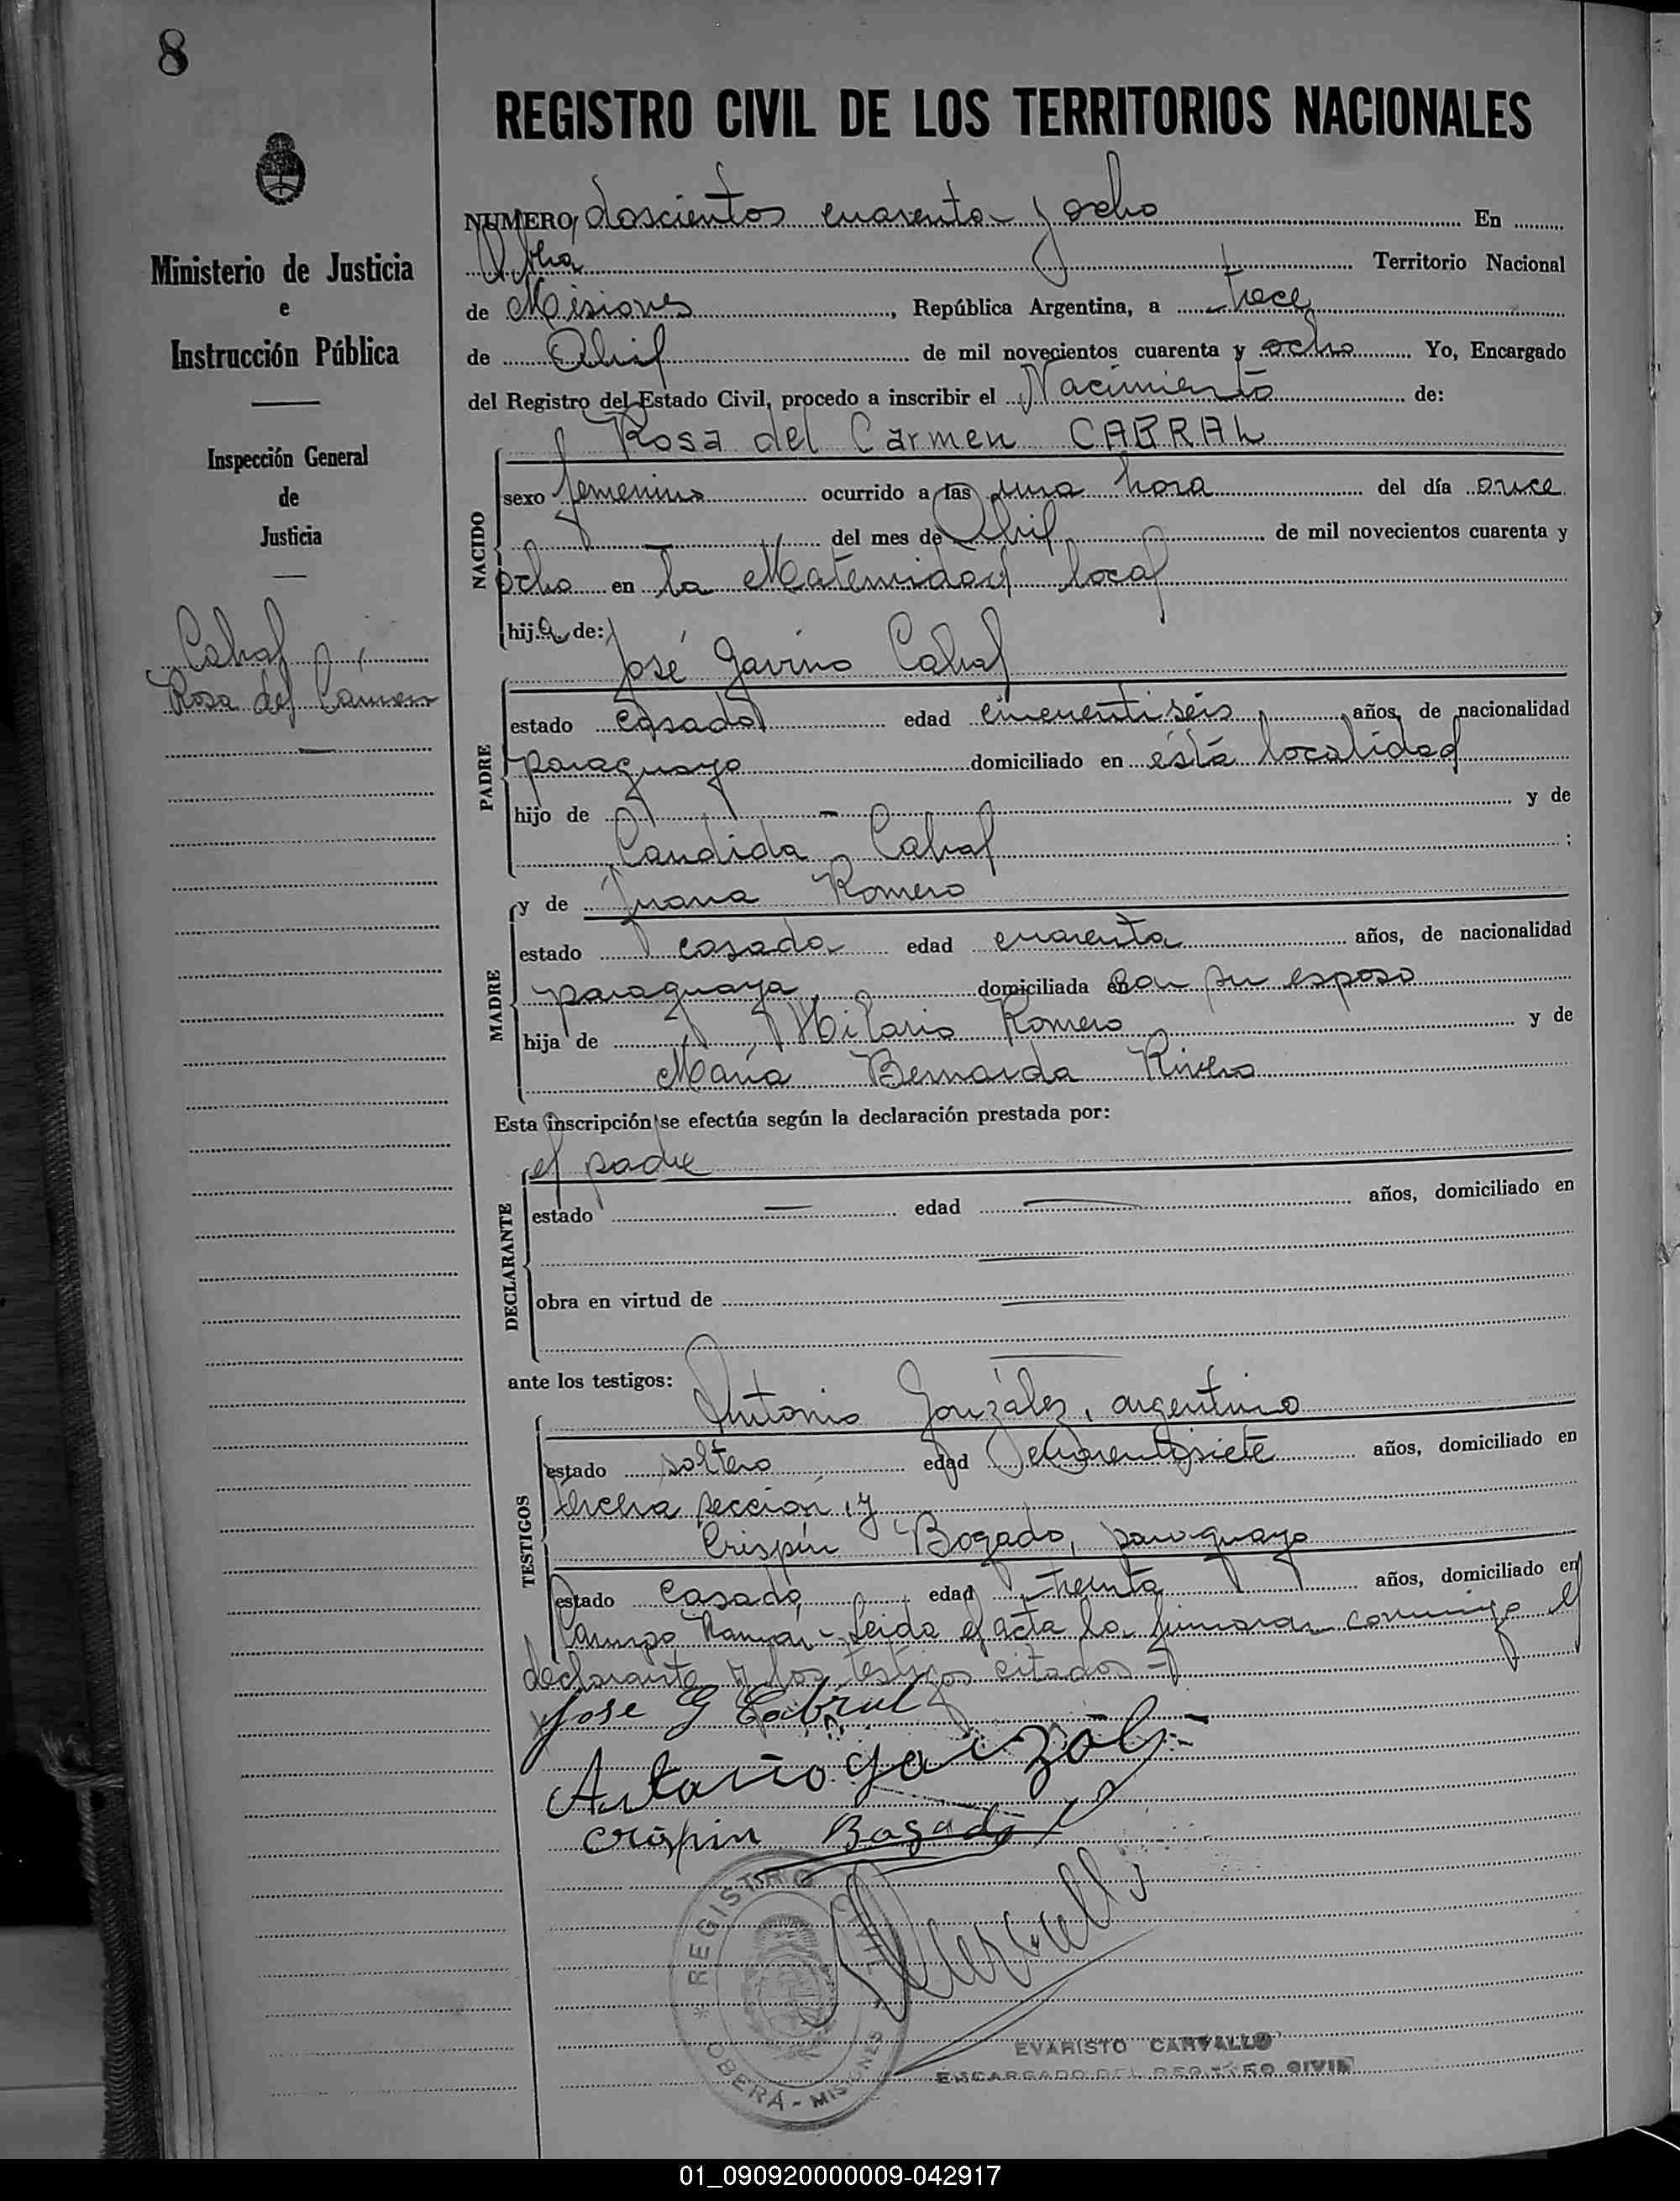 8
REGISTRO CIVIL DE LOS TERRITORIOS NACIONALES
Ministerio de Justicia
e
Instrucción Pública
Inspección General
de
Justicia
Cabral
Rosa del Carmen
NUMERO doscientos cuarenta y ocho En
Oberá Territorio Nacional
de Misiones, República Argentina, a trece
de Abril de mil novecientos cuarenta y ocho Yo, Encargado
del Registro del Estado Civil, procedo a inscribir el Nacimiento de:
Rosa del Carmen CABRAL
NACIDO
sexo femenino ocurrido a las una hora del día once
del mes de Abril de mil novecientos cuarenta y
ocho en la Maternidad local
hija de:
José Gavino Cabral
PADRE
estado casado edad cincuentiséis años, de nacionalidad
paraguayo domiciliado en ésta localidad
hijo de - y de
Candida Cabral ;
y de Juana Romero
MADRE
estado casada edad cuarenta años, de nacionalidad
paraguaya domiciliada en con su esposo
hija de Hilario Romero y de
María Bernarda
Esta inscripción se efectúa según la declaración prestada por:
el padre
DECLARANTE
estado — edad — años, domiciliado en
obra en virtud de —
ante los testigos:
Antonio González, argentino
TESTIGOS
estado soltero edad cuarentisiete años, domiciliado en
tercera sección, y
Crispín Bogado, paraguayo
estado casado edad treinta años, domiciliado en
Campo - Leida el acta la firmaran conmigo el
declarante y los testigos citados -
Jose G Cabral
Antonio Gonzalez
Crispin Bogado
REGISTRO CIVIL
OBERÁ - MISIONES
EVARISTO CARVALLO
ENCARGADO DEL REGISTRO CIVIL
01_090920000009-042917